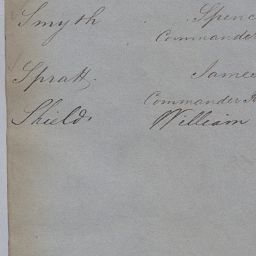 Smyth . Spenc
Commander
Spratt. James
Commander R
Shields William